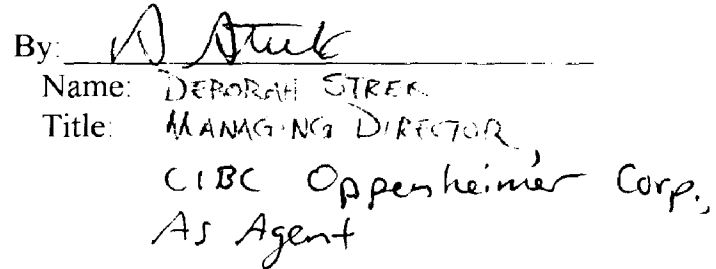 By:
Name: DEBORAH STREK
Title: MANAGING DIRECTOR,
CIBC Oppenheimer Corp.,
As Agent